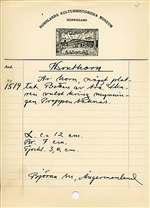 NORRLANDS KULTURHISTORISKA MUSEUM
HÄRNÖSAND
Kruthorn
No
1519
Av horn, något plat-
tat. Botten av trä.
runt kring mynnin-
gen. Proppen saknas.
L. ca 12 cm
Br. 7 cm.
Tjockl. 3,2 cm.
Björna sn, Ångermanland